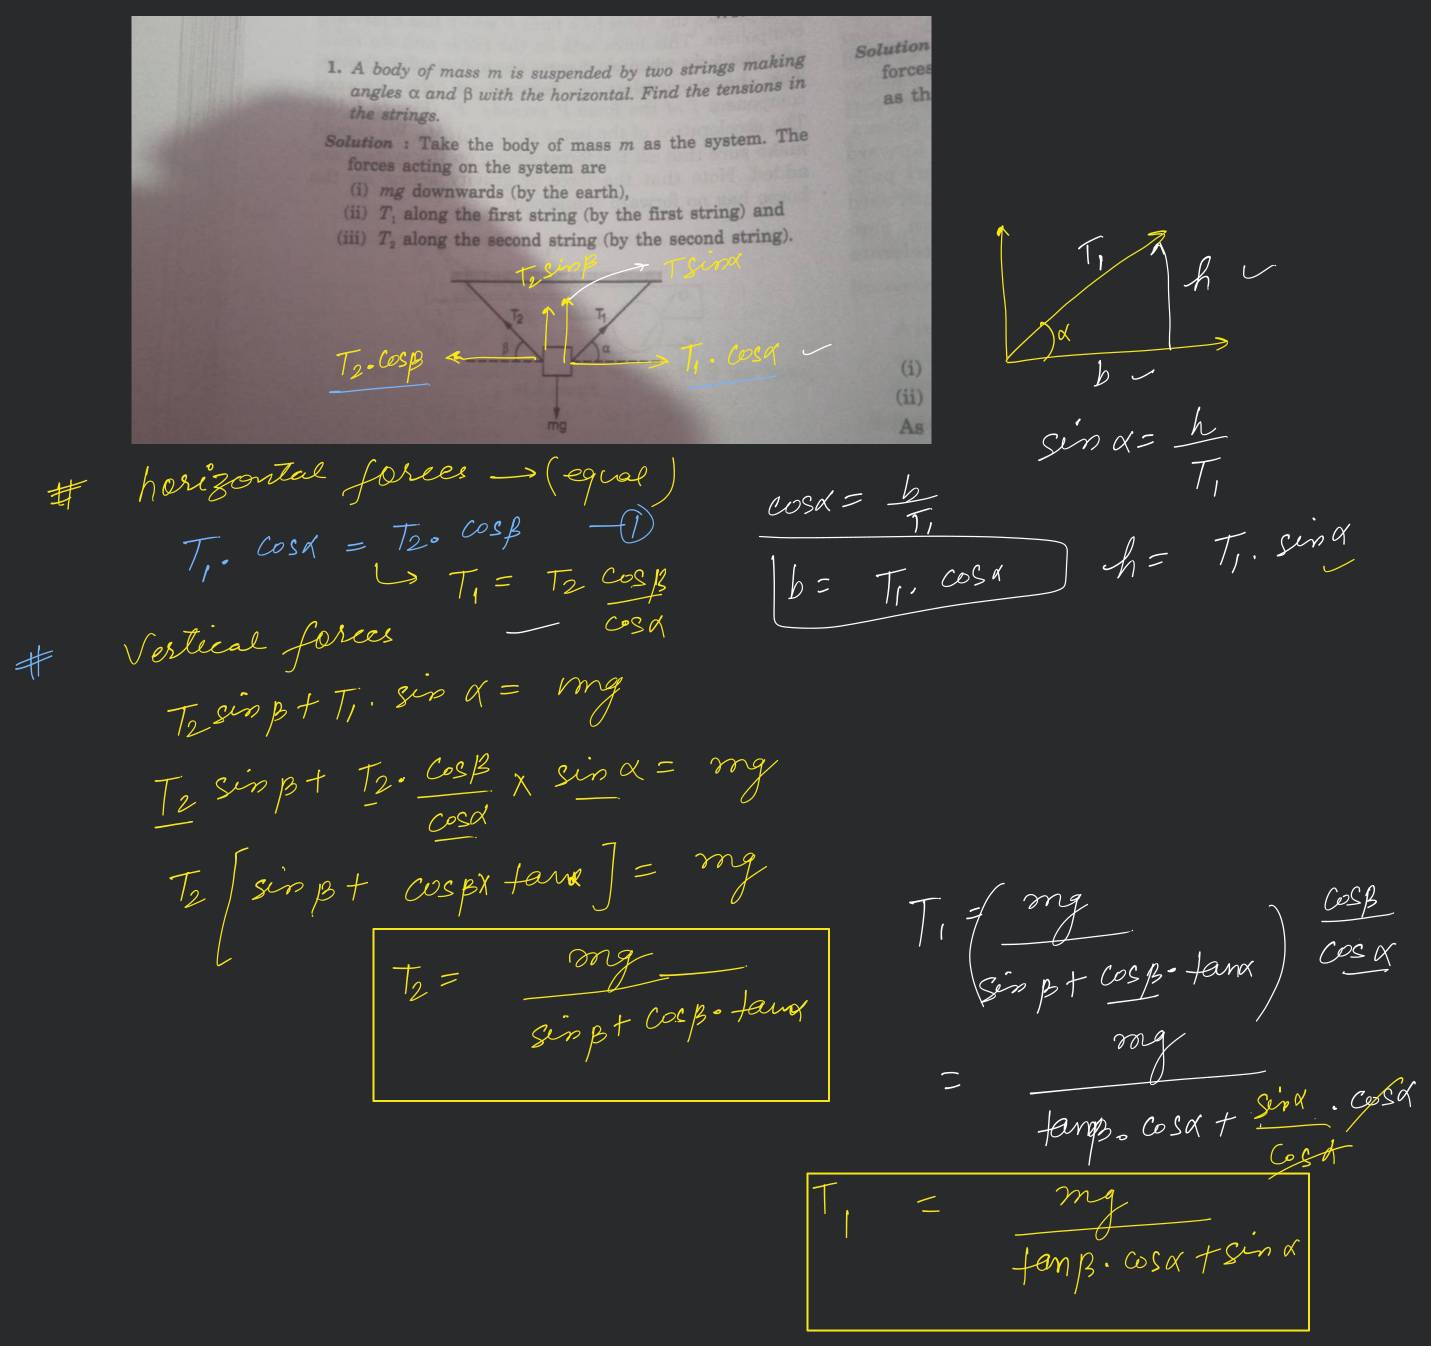 1. A body of mass m is suspended by two strings making
angles α and β with the horizontal. Find the tensions in
the strings.
Solution : Take the body of mass m as the system. The
forces acting on the system are
(i) mg downwards (by the earth),
(ii) T₁ along the first string (by the first string) and
(iii) T₂ along the second string (by the second string).
Solution
forces
as th
(i)
(ii)
As
T₂ sinβ
T sinα
T₂
T₁
β
α
T₂·cosβ
T₁·cosα
mg
T₁
h
α
b
sin α = h/T₁
cosα = b/T₁
b = T₁· cosα
h = T₁· sinα
# horizontal forces → (equal)
T₁· cosα = T₂· cosβ —①
↳ T₁ = T₂ cosβ/cosα
# Vertical forces
T₂ sinβ + T₁· sin α = mg
T₂ sinβ + T₂· cosβ/cosα × sin α = mg
T₂ [sinβ + cosβ× tanα] = mg
T₂ = mg/(sinβ + cosβ·tanα)
T₁ = (mg/(sinβ + cosβ·tanα)) cosβ/cosα
= mg/(tanβ·cosα + sinα/cosα · cosα)
T₁ = mg/(tanβ·cosα + sinα)